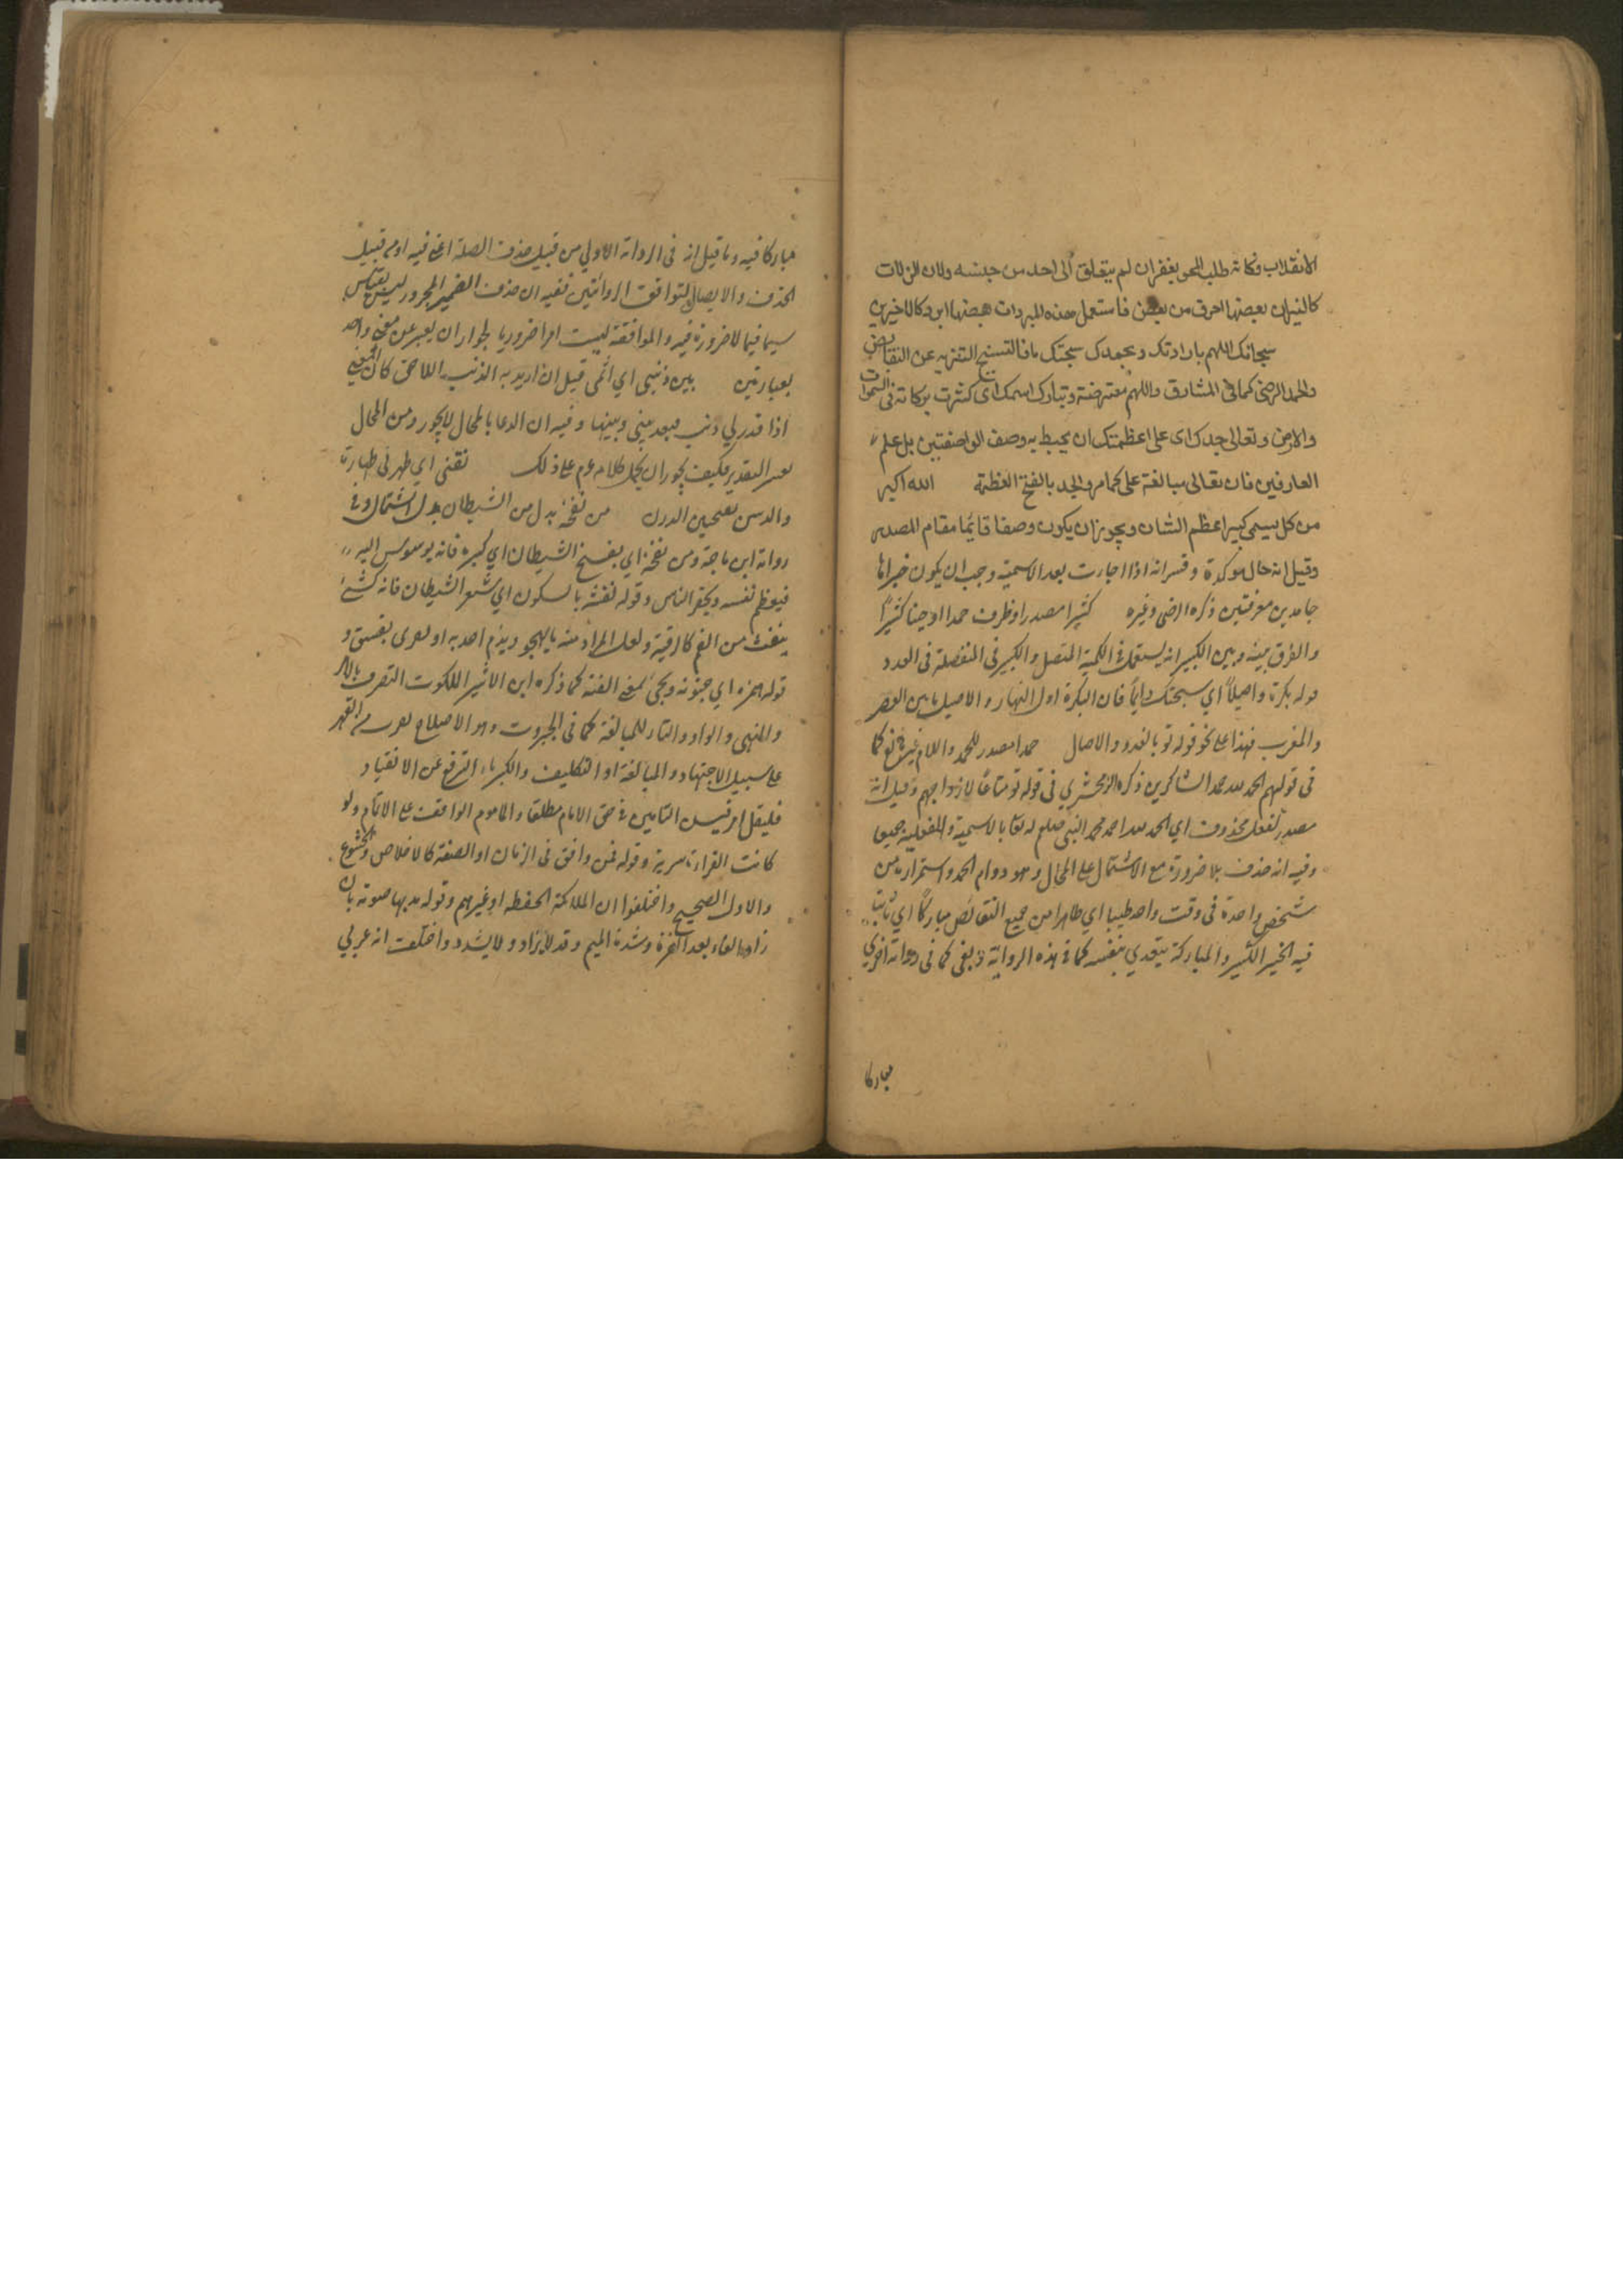 الانقلاب وكانه طلب المحو بغفران لم يتعلق الى احد من جنسه ولان الزلات
كالنيران بعضها احرق من بعض فاستعمل معنه المبردات بعضها ابرد كالاخيرين
سبحانك اللهم بارادتك وبحمدك سبحتك مافالتسبيح التنزيه عن النقايص
والحمد الرضى كما فى المشارق واللهم معترضة وتبارك اسمك اى كثرت بركاته فى السموات
والارض وتعالى جدك اى على اعظمتك ان يحيط به وصف الواصفين بل علم
العارفين فان تعالى مبالغة على كمامر والجد بالفتح العظمة الله اكبر
من كل يسمى كبيرا عظم الشان ويجوز ان يكون وصفا قايما مقام المصدر
وقيل انه حال موكدة وفسرانه اذا جارت بعد الاسمية وجب ان يكون خبراها
جامدين معرفتين ذكره الرضى وغيره كثيرا مصدر او ظرف حمدا او حينا كثيرًا
والفرق بينه وبين الكبير انه يستعمل فى الكمية المتصل والكبير فى المنفصلة فى العدد
قوله بكرة واصيلاً اي سبحتك دايماً فان البكرة اول النهار والاصيل ما بين العصر
والمغرب فهذا على نحو قوله تو بالغدو والاصال حمدا مصدر للحمد واللام كما
فى قولهم الحمد لله حمد الشاكرين ذكره الزمخشري فى قوله تو متاعًا لازواجهم وقيل انه
مصدر لفعل محذوف اي الحمد لله احمد محمد النبى صلعم له تعا بالاسمية والفعلية جميعا
وفيه انه حذف بلا ضرورة مع الاشتمال على المحال وهو دوام الحمد واستمراره من
شخص واحدة فى وقت واحد طيبا اي طاهرا من جميع النقائص مباركًا اي ثابتا
فيه الخير الكثير والمباركة يتعدي بنفسه كما فى هذه الرواية وبفى كما فى رواية اخري
مباركا
مباركا فيه وما قيل انه فى الرواة الاولي من قبيل حذف الصلة اعنى فيه او من قبيل
الحذف والايصال لتوافق الروايتين ففيه ان حذف الضمير المجرور ليس بقياس
سيما فيما لا ضرورة فيه والموافقة ليست امرا ضروريا لجواز ان يعبر عن معنى واحد
بعبارتين بين ذنبى اي اثمى قيل ان اريد به الذنب اللاحق كان المعنى
اذا قدر لي ذنب فبعد بينى وبينها وفيه ان الدعا بالمحال لا يجوز ومن المحال
التقدير فكيف يجوز ان يحمل كلامه عم على ذلك نقنى اي طهرنى طهارة
والدنس بفتحين الدرن من نفخه بدل من الشيطان بدل اشتمال وفى
رواة ابن ماجة ومن نفخه اي بنفخ الشيطان اي كبره فانه يوسوس اليه
فيعظم نفسه ويحقر الناس وقوله نفثه بالسكون اي شعر الشيطان فانه شئ
ينفث من الفم كالرقية ولعل المراد منه ما يهجو ويذم احد به او بفسق و
قوله همزه اي جنونه ويجئ بمعنى الفتنة كما ذكره ابن الاثير الملكوت التصرف بالامر
والنهى والواو والتاء للمبالغة كما فى الجبروت وهو الاصلاح القهر
على سبيل الاجتهاد والمبالغة او التكليف والكبرياء الترفع عن الانقياد
فليقل امر التامين فى حق الامام مطلقا والماموم الواقف على الاتمام ولو
كانت القراءة سرية وقوله فمن وافق فى الزمان او الصفة كالاخلاص والخشوع
والاول الصحيح واختلفوا ان الملائكة الحفظه او غيرهم وقوله مد بها صوته بان
زاد الفاء بعد الهمزة وشدة الميم وقد لا يزاد ولا يشدد واختلف انه عربي